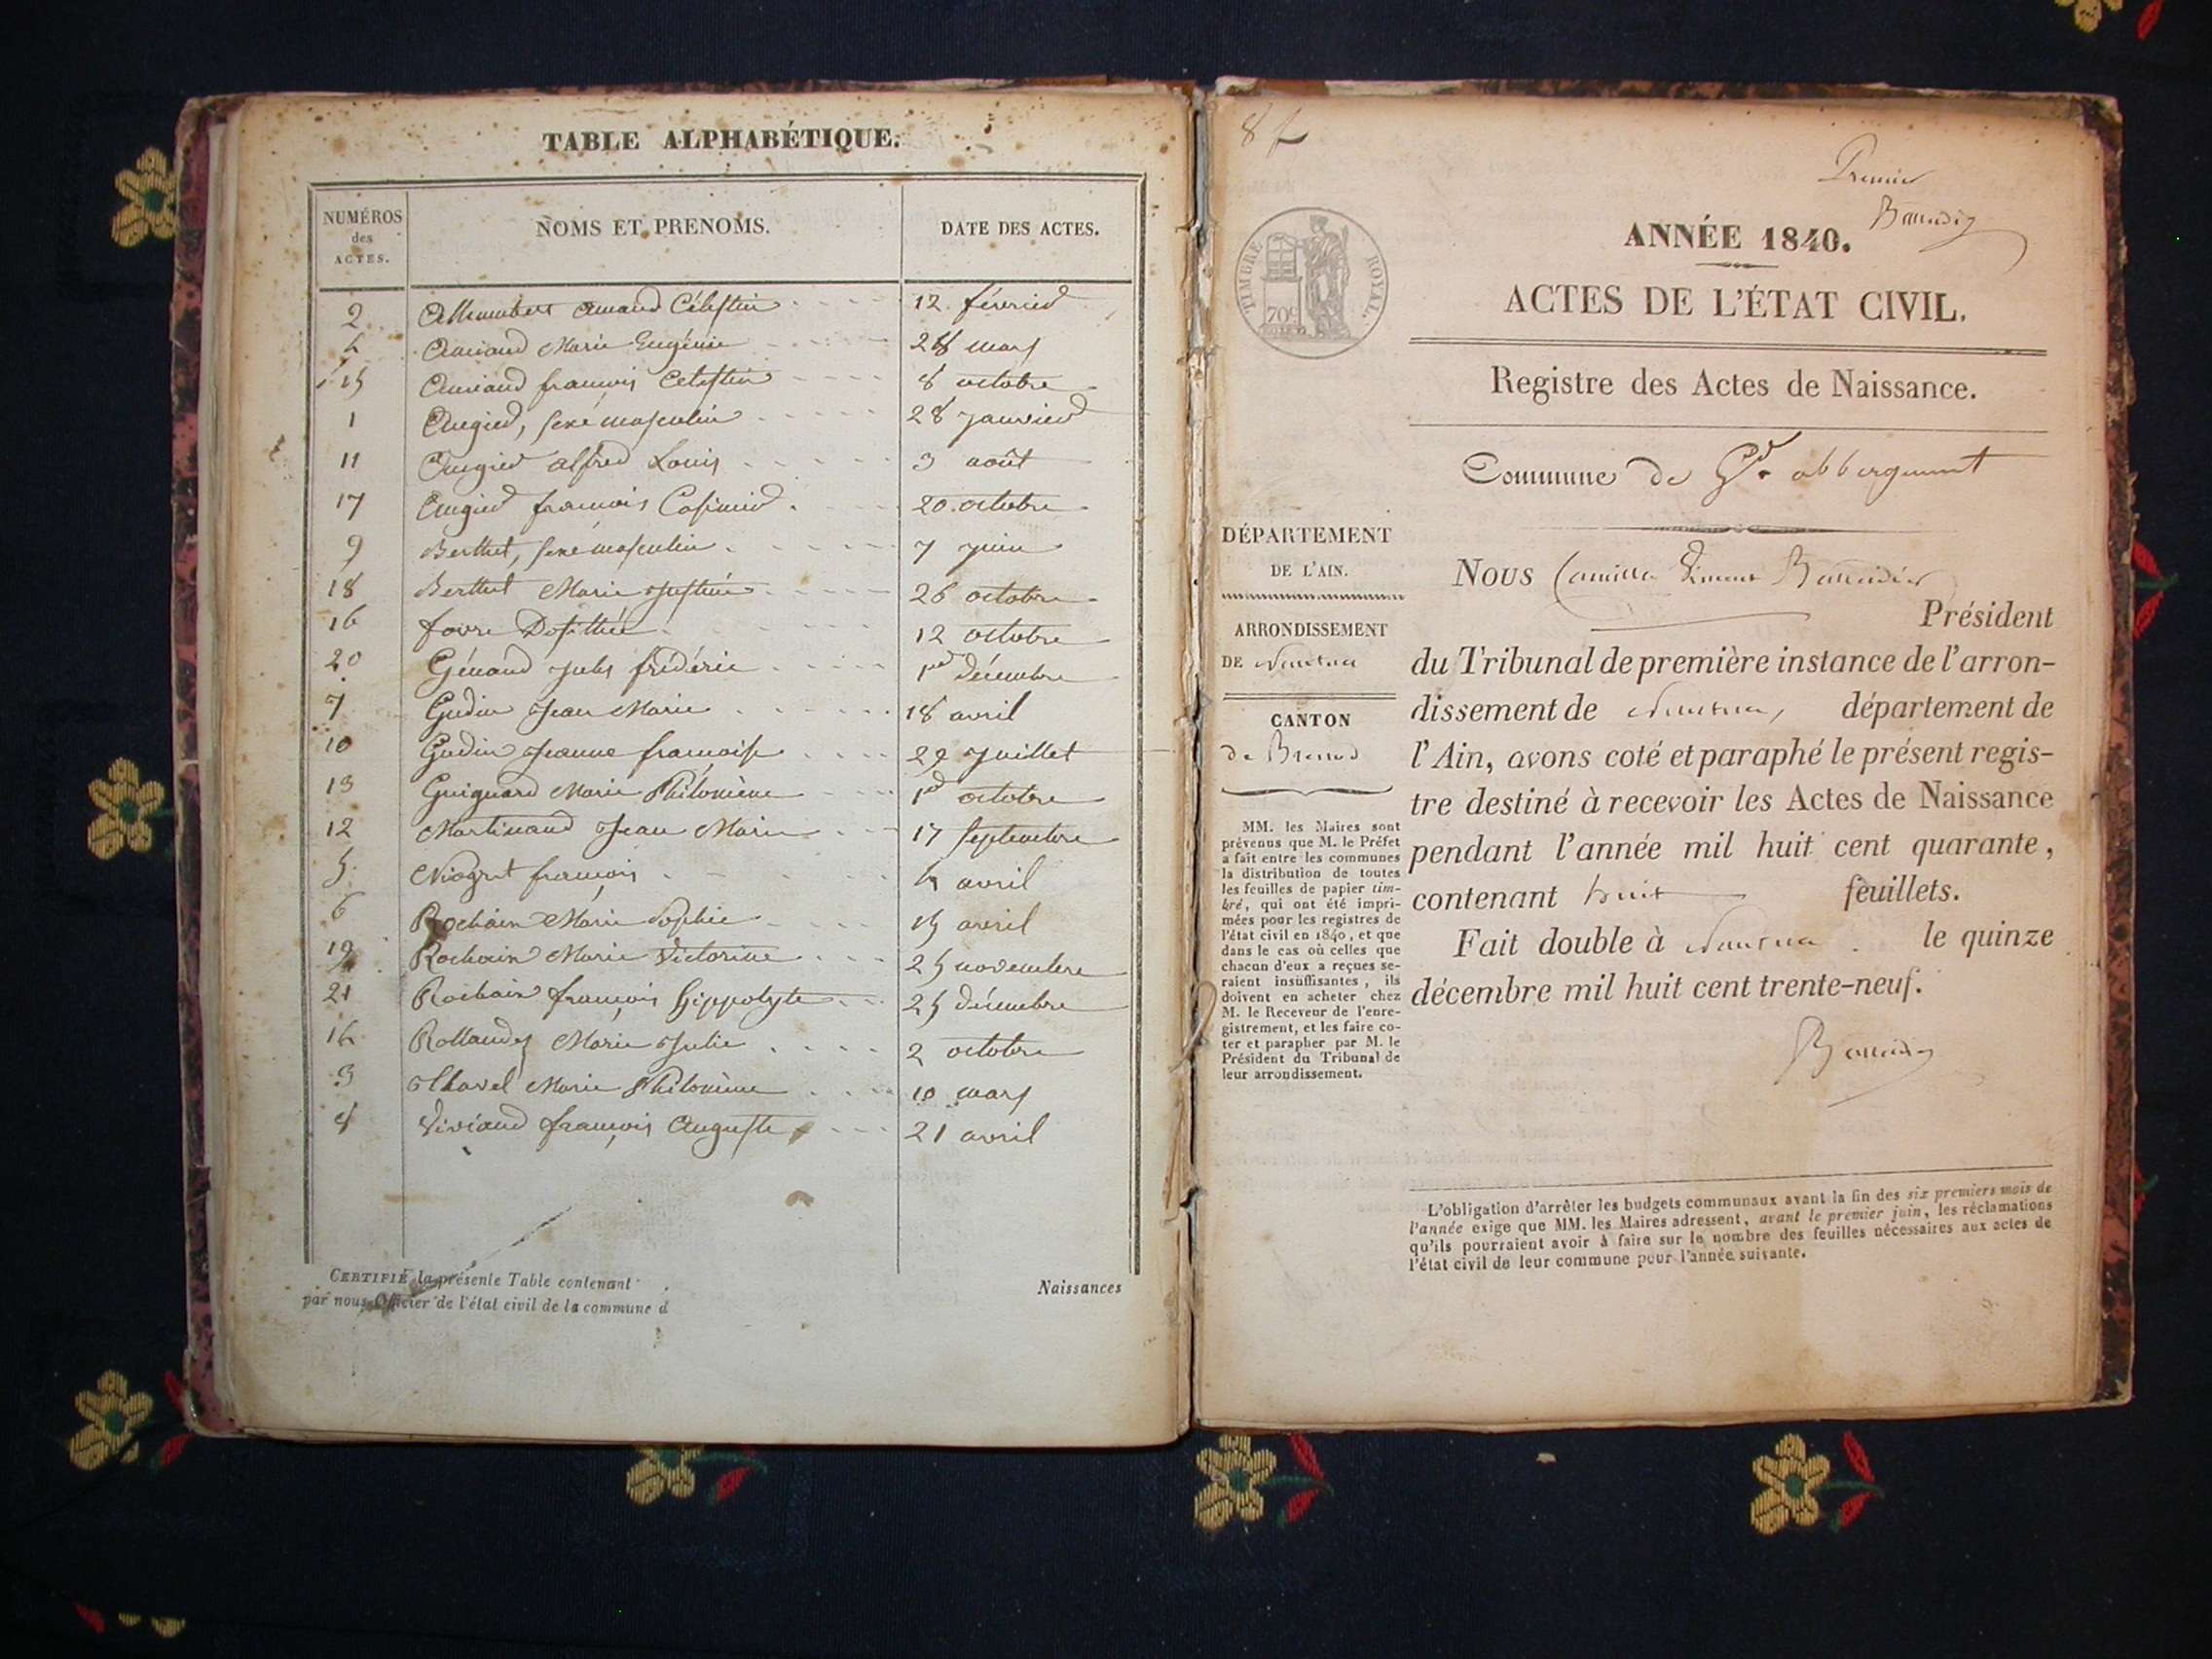 TABLE ALPHABÉTIQUE.
NUMÉROS des ACTES.
NOMS ET PRENOMS.
DATE DES ACTES.
2 Célestin 12 février
Marie Eugénie 28 mars
15 françois Celestin 8 octobre
1 Augier, sexe masculin 28 janvier
11 Augier alfred Louis 3 août
17 Augier françois Casimir. 20 octobre
9 Berthet, sexe masculin 7 juin
18 Berthet Marie Justine 26 octobre
16 favre Dosithée 12 octobre
20 Génand Jules frédéric 1er décembre
7 Gudin Jean Marie 18 avril
10 Gudin Jeanne françoise 22 Juillet
13 Guignard Marie Philomène 1er octobre
12 Martinand Jean Marie 17 septembre
5 Niogret françois 4 avril
6 Rochain Marie Sophie 15 avril
19 Rochain Marie Victorine 25 novembre
21 Rochain françois hippolyte 25 décembre
14 Marie Julie 2 octobre
3 Marie Philomène 10 mars
8 Viviand françois Auguste 21 avril
CERTIFIÉ la présente Table contenant Naissances
par nous Officier de l'état civil de la commune d
8 f
Premier
TIMBRE ROYAL.
70c
ANNÉE 1840.
ACTES DE L'ÉTAT CIVIL.
Registre des Actes de Naissance.
Commune de Gd. abbergement
DÉPARTEMENT
DE L'AIN.
ARRONDISSEMENT
DE Nantua
CANTON
de Brenod
MM. les Maires sont
prévenus que M. le Préfet
a fait entre les communes
la distribution de toutes
les feuilles de papier tim-
bré, qui ont été impri-
mées pour les registres de
l'état civil en 1840, et que
dans le cas où celles que
chacun d'eux a reçues se-
raient insuffisantes, ils
doivent en acheter chez
M. le Receveur de l'enre-
gistrement, et les faire co-
ter et parapher par M. le
Président du Tribunal de
leur arrondissement.
Nous Camille
Président
du Tribunal de première instance de l'arron-
dissement de Nantua, département de
l'Ain, avons coté et paraphé le présent regis-
tre destiné à recevoir les Actes de Naissance
pendant l'année mil huit cent quarante,
contenant huit feuillets.
Fait double à Nantua. le quinze
décembre mil huit cent trente-neuf.
L'obligation d'arrêter les budgets communaux avant la fin des six premiers mois de
l'année exige que MM. les Maires adressent, avant le premier juin, les réclamations
qu'ils pourraient avoir à faire sur le nombre des feuilles nécessaires aux actes de
l'état civil de leur commune pour l'année suivante.